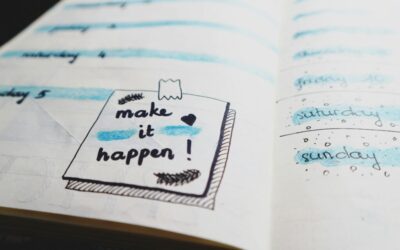 saturday 4
day 5
make
it
happen!
saturday
sunday